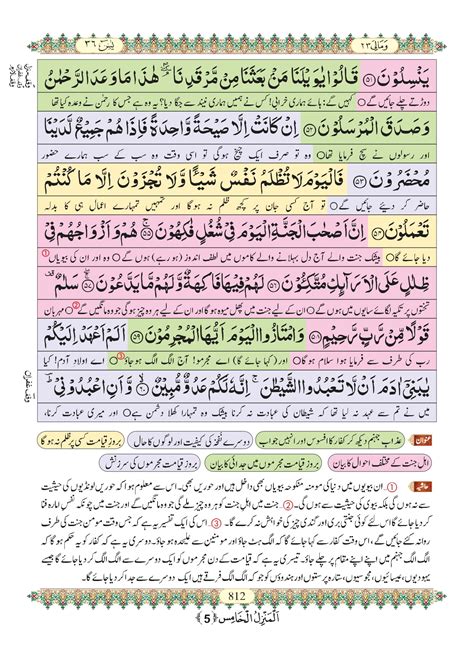 وَمَالِیَ ٢٣
یٰسٓ ٣٦
يَنْسِلُوْنَ ﴿٥١﴾ قَالُوْا يٰوَيْلَنَا مَنْۢ بَعَثَنَا مِنْ مَّرْقَدِنَا ۘ هٰذَا مَا وَعَدَ الرَّحْمٰنُ
دوڑتے چلے جائیں گے ○ کہیں گے: ہائے ہماری خرابی! کس نے ہمیں ہماری نیند سے جگا دیا؟ یہ وہ ہے جس کا رحمٰن نے وعدہ کیا تھا
وَصَدَقَ الْمُرْسَلُوْنَ ﴿٥٢﴾ اِنْ كَانَتْ اِلَّا صَيْحَةً وَّاحِدَةً فَاِذَا هُمْ جَمِيْعٌ لَّدَيْنَا
اور رسولوں نے سچ فرمایا تھا ○ وہ تو صرف ایک چیخ ہوگی تو اسی وقت وہ سب کے سب ہمارے حضور
مُحْضَرُوْنَ ﴿٥٣﴾ فَالْيَوْمَ لَا تُظْلَمُ نَفْسٌ شَيْـًٔا وَّلَا تُجْزَوْنَ اِلَّا مَا كُنْتُمْ
حاضر کر دئیے جائیں گے ○ تو آج کسی جان پر کچھ ظلم نہ ہوگا اور تمہیں تمہارے اعمال ہی کا بدلہ
تَعْمَلُوْنَ ﴿٥٤﴾ اِنَّ اَصْحٰبَ الْجَنَّةِ الْيَوْمَ فِيْ شُغُلٍ فٰكِهُوْنَ ﴿٥٥﴾ هُمْ وَاَزْوَاجُهُمْ فِيْ
دیا جائے گا ○ بیشک جنت والے آج دل بہلانے والے کاموں میں لطف اندوز (ہو رہے) ہوں گے ○ وہ اور ان کی بیویاں ①
ظِلٰلٍ عَلَى الْاَرَآىِٕكِ مُتَّكِـُٔوْنَ ﴿٥٦﴾ لَهُمْ فِيْهَا فَاكِهَةٌ وَّلَهُمْ مَّا يَدَّعُوْنَ ﴿٥٧﴾ سَلٰمٌ
تختوں پر تکیہ لگائے سایوں میں ہوں گے ○ ان کے لیے جنت میں پھل میوہ ہوگا اور ان کے لیے ہر وہ چیز ہوگی جو وہ مانگیں گے ② ○ مہربان
قَوْلًا مِّنْ رَّبٍّ رَّحِيْمٍ ﴿٥٨﴾ وَامْتَازُوا الْيَوْمَ اَيُّهَا الْمُجْرِمُوْنَ ﴿٥٩﴾ اَلَمْ اَعْهَدْ اِلَيْكُمْ
رب کی طرف سے فرمایا ہوا سلام ہوگا ○ اور (کہا جائے گا) اے مجرمو! آج الگ الگ ہو جاؤ ③ ○ اے اولادِ آدم! کیا
يٰبَنِيْٓ اٰدَمَ اَنْ لَّا تَعْبُدُوا الشَّيْطٰنَ ۚ اِنَّهٗ لَكُمْ عَدُوٌّ مُّبِيْنٌ ﴿٦٠﴾ وَّاَنِ اعْبُدُوْنِيْ ؔ
میں نے تم سے عہد نہ لیا تھا کہ شیطان کی عبادت نہ کرنا بیشک وہ تمہارا کھلا دشمن ہے ○ اور میری عبادت کرنا،
عنوان عذابِ جہنم دیکھ کر کفار کا افسوس اور انہیں جواب دوسرے نفخے کی کیفیت اور لوگوں کا حال بروزِ قیامت کسی پر ظلم نہ ہوگا
اہلِ جنت کے مختلف احوال کا بیان بروزِ قیامت مجرموں میں جدائی کا بیان بروزِ قیامت مجرموں کی سرزنش
حاشیہ ①... ان بیویوں میں دنیا کی مومنہ منکوحہ بیویاں بھی داخل ہیں اور حوریں بھی۔ اس سے معلوم ہوا کہ حوریں لونڈیوں کی حیثیت
سے نہ ہوں گی بلکہ بیوی کی حیثیت سے ہوں گی۔ ②... جنت میں اہلِ جنت کو ہر وہ چیز ملے گی جو وہ مانگیں گے اور جنت میں چونکہ نفسِ امارہ فنا
کر دیا جائے گا اس لئے کوئی جنتی بری اور گندی چیز کی خواہش نہ کرے گا۔ ③... اس کی ایک تفسیر یہ ہے کہ جس وقت مومن جنت کی طرف
روانہ کئے جائیں گے، اس وقت کفار سے کہا جائے گا کہ الگ ہٹ جاؤ اور مومنین سے علیحدہ ہو جاؤ۔ دوسری یہ ہے کہ کفار کو حکم ہوگا کہ
الگ الگ جہنم میں اپنے اپنے مقام پر چلے جاؤ۔ تیسری یہ ہے کہ قیامت کے دن مجرموں کو ایک دوسرے سے الگ الگ کر دیا جائے گا جیسے
یہودیوں، عیسائیوں، مجوسیوں، ستارہ پرستوں اور ہندوؤں کو جو کہ الگ الگ فرقے ہیں ایک دوسرے سے جدا کر دیا جائے گا۔
812
اَلْمَنْزِلُ الْخَامِس ﴿5﴾